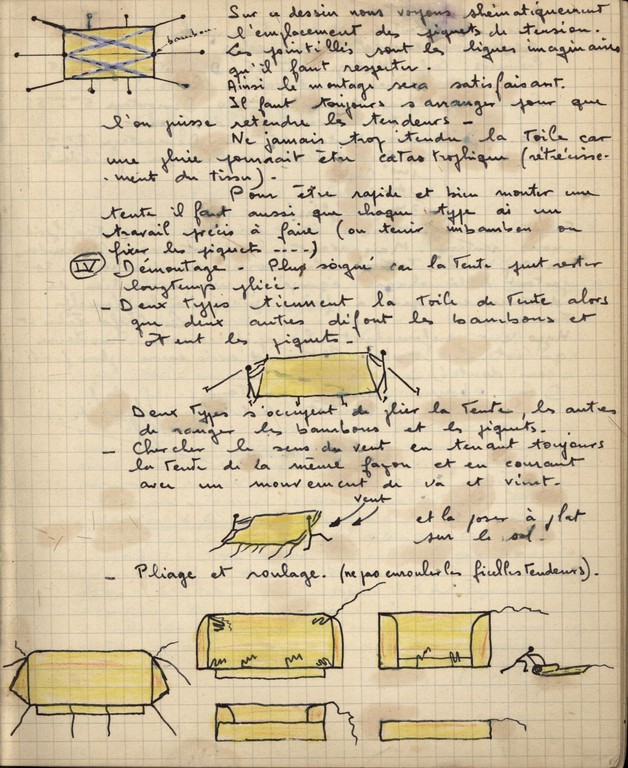 Sur ce dessin nous voyons shématiquement
l'emplacement des piquets de tension.
bambou
Les pointillés sont les lignes imaginaires
qu'il faut respecter.
Ainsi le montage sera satisfaisant.
Il faut toujours s'arranger pour que
l'on puisse retendre les tendeurs -
Ne jamais trop tendre la Toile car
une pluie pourrait être catastrophique (rétrécisse-
-ment du tissu).
Pour être rapide et bien monter une
tente il faut aussi que chaque type ai un
travail précis à faire (ou tenir un bambou ou
fixer les piquets ----)
IV Démontage - Plus soigné car la Tente peut rester
longtemps pliée -
- Deux types tiennent la Toile de Tente alors
que deux autres défont les bambous et
ôtent les piquets -
Deux Types s'occupent de plier la Tente, les autres
de ranger les bambous et les piquets.
- Chercher le sens du vent en tenant toujours
la Tente de la même façon et en courant
avec un mouvement de va et vient.
vent
et la poser à plat
sur le sol.
- Pliage et roulage. (ne pas enrouler les ficelles tendeurs).